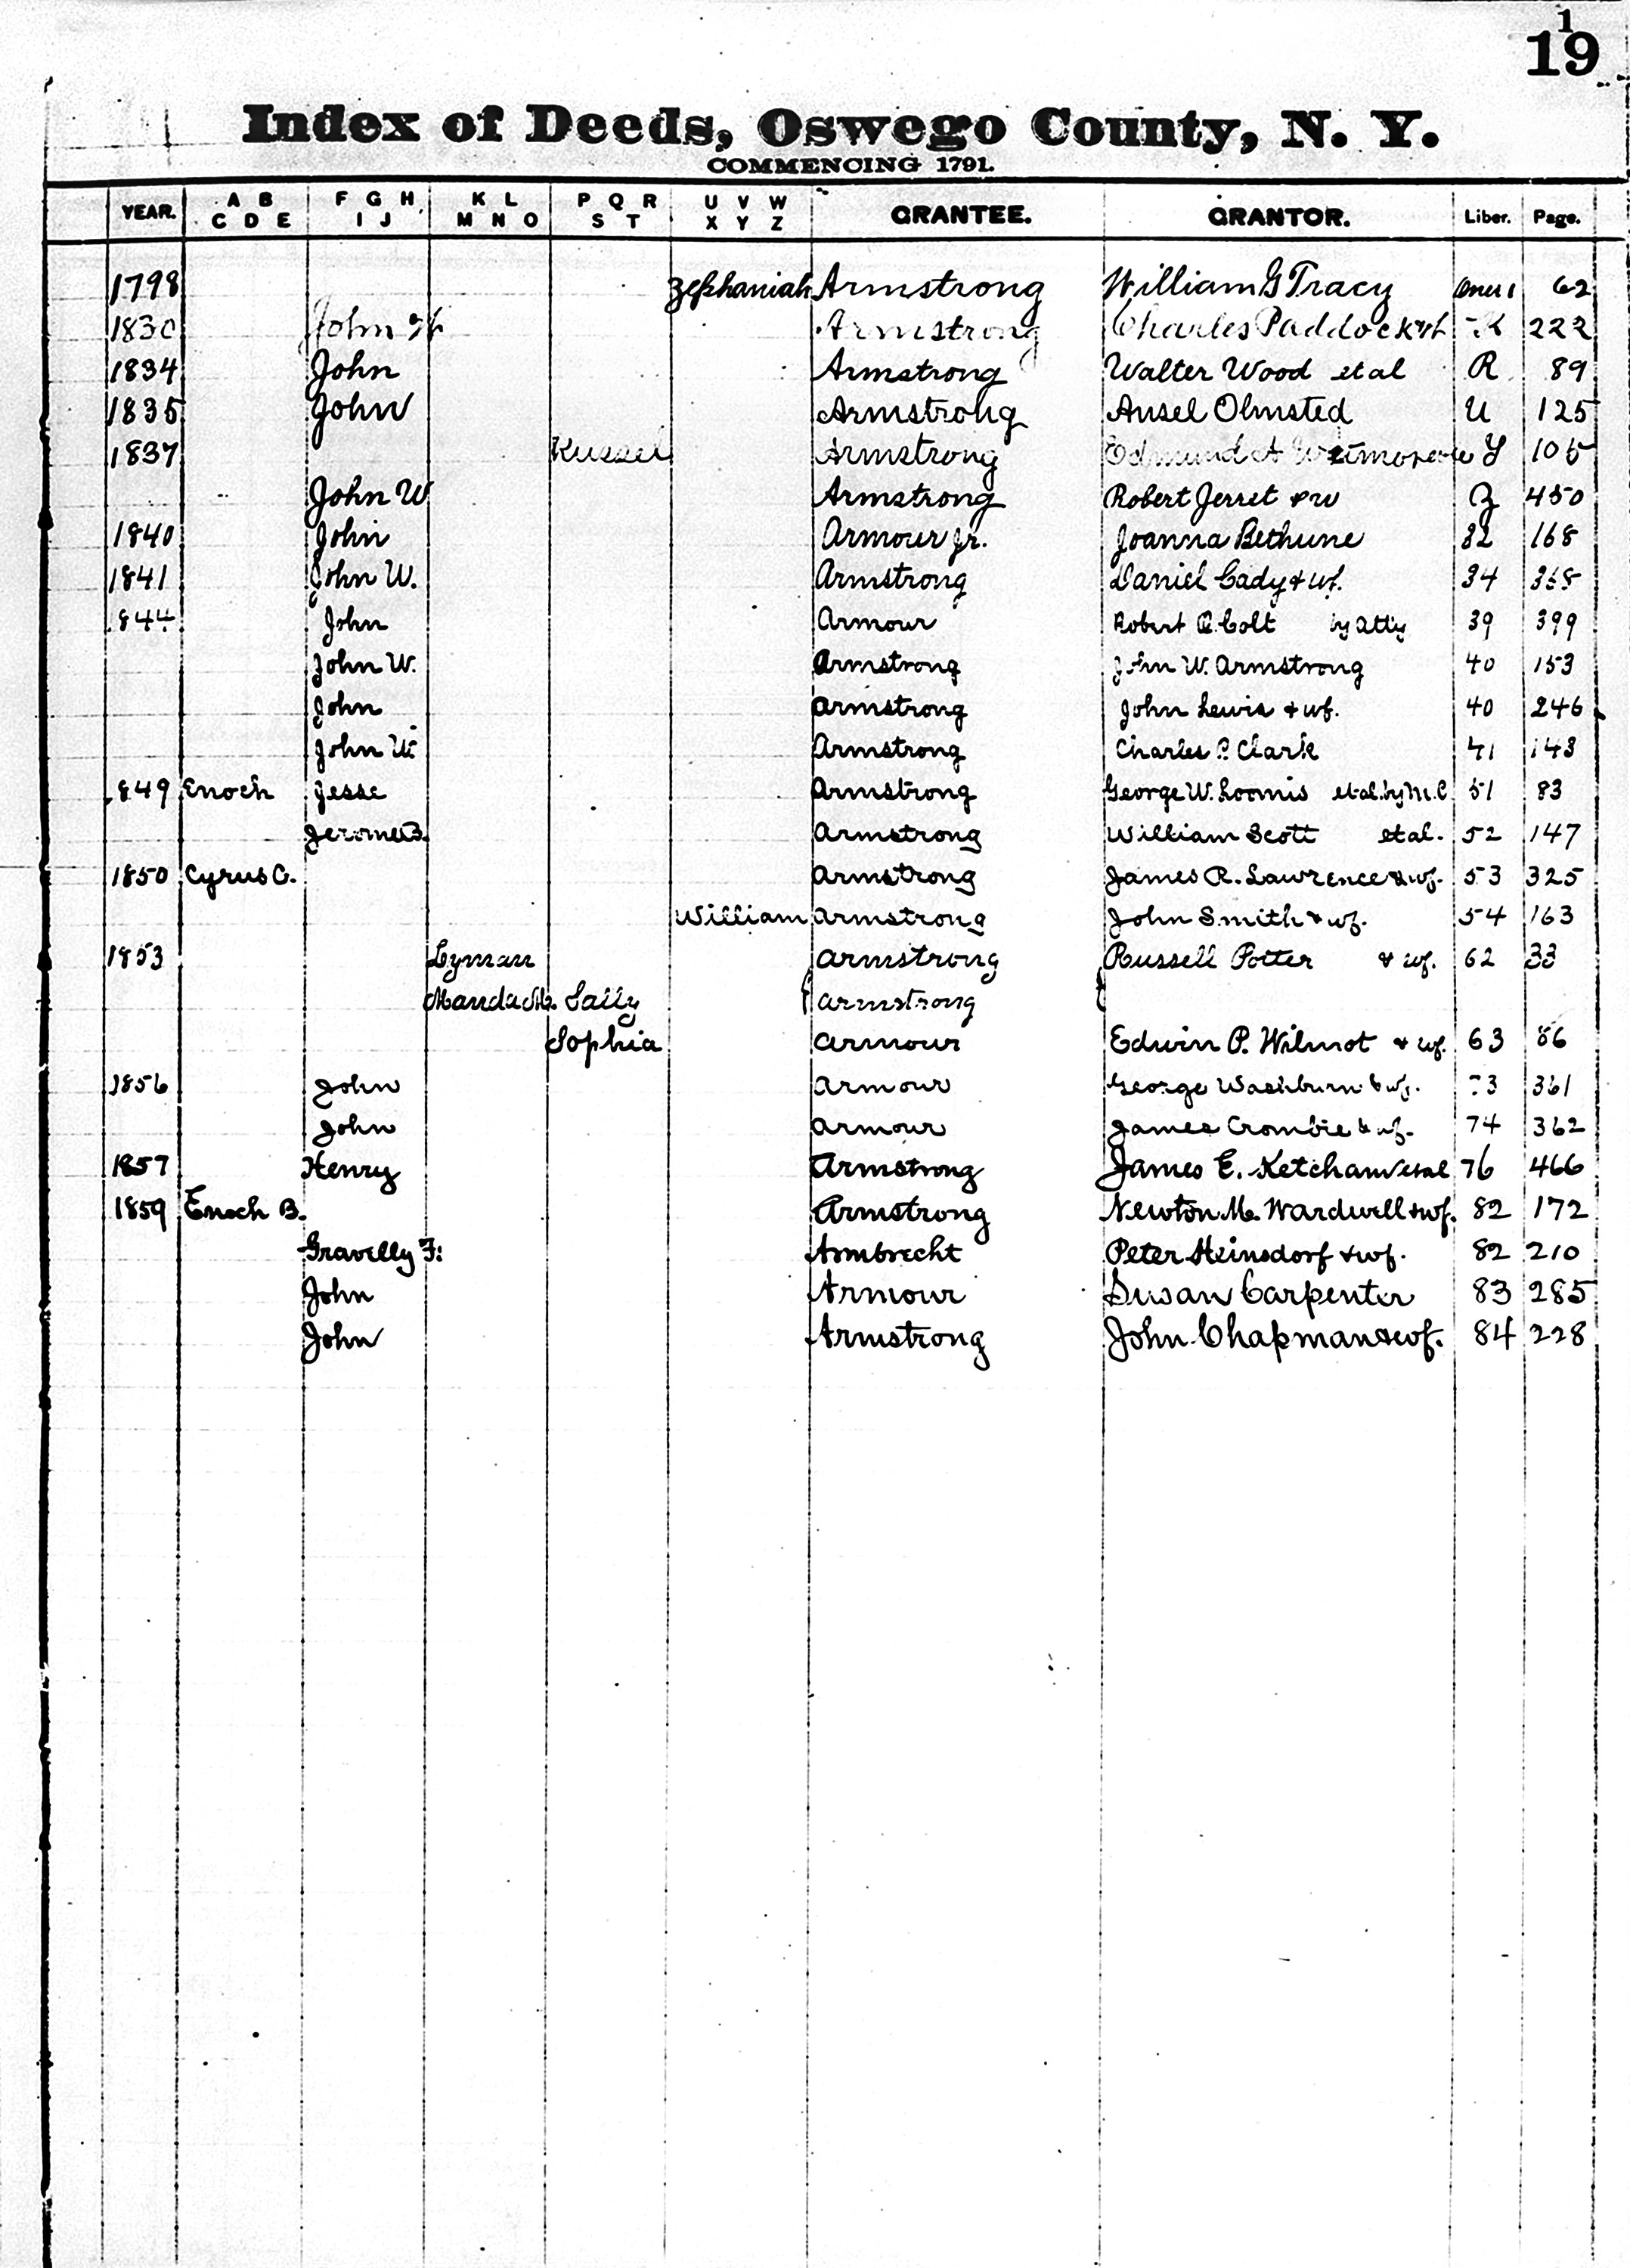 1
19
Index of Deeds, Oswego County, N. Y.
COMMENCING 1791.
YEAR. A B C D E F G H I J K L M N O P Q R S T U V W X Y Z GRANTEE. GRANTOR. Liber. Page.
1798 Zephaniah Armstrong William G Tracy 62
1830 John Armstrong Charles Paddock K 222
1834 John Armstrong Walter Wood et al R 89
1835 John Armstrong Ansel Olmsted U 125
1837 Russel Armstrong Edmund A Wetmore Y 105
John W Armstrong Robert Jerret & w Z 450
1840 John Armour Jr. Joanna Bethune 32 168
1841 John W. Armstrong Daniel Cady & wf. 34
1844 John Armour Robert Colt by atty 39 399
John W. Armstrong John W. Armstrong 40 153
John Armstrong John Lewis & wf. 40 246
John W. Armstrong Charles Clark 41 143
1849 Enoch Jesse Armstrong George W. Loomis et al. by M.C. 51 83
Jerome B. Armstrong William Scott et al. 52 147
1850 Cyrus C. Armstrong James R. Lawrence & wf. 53 325
William Armstrong John Smith & wf. 54 163
1853 Lyman Armstrong Russell Potter & wf. 62 33
Manda M. Sally Armstrong
Sophia Armour Edwin P. Wilmot & wf. 63 86
1856 John Armour George Washburn & wf. 73 361
John Armour James Crombie & wf. 74 362
1857 Henry Armstrong James E. Ketcham et al 76 466
1859 Enoch B. Armstrong Newton M. Wardwell & wf. 82 172
Gravelly F. Armbrecht Peter Heinsdorf & wf. 82 210
John Armour Susan Carpenter 83 285
John Armstrong John Chapman & wf. 84 228